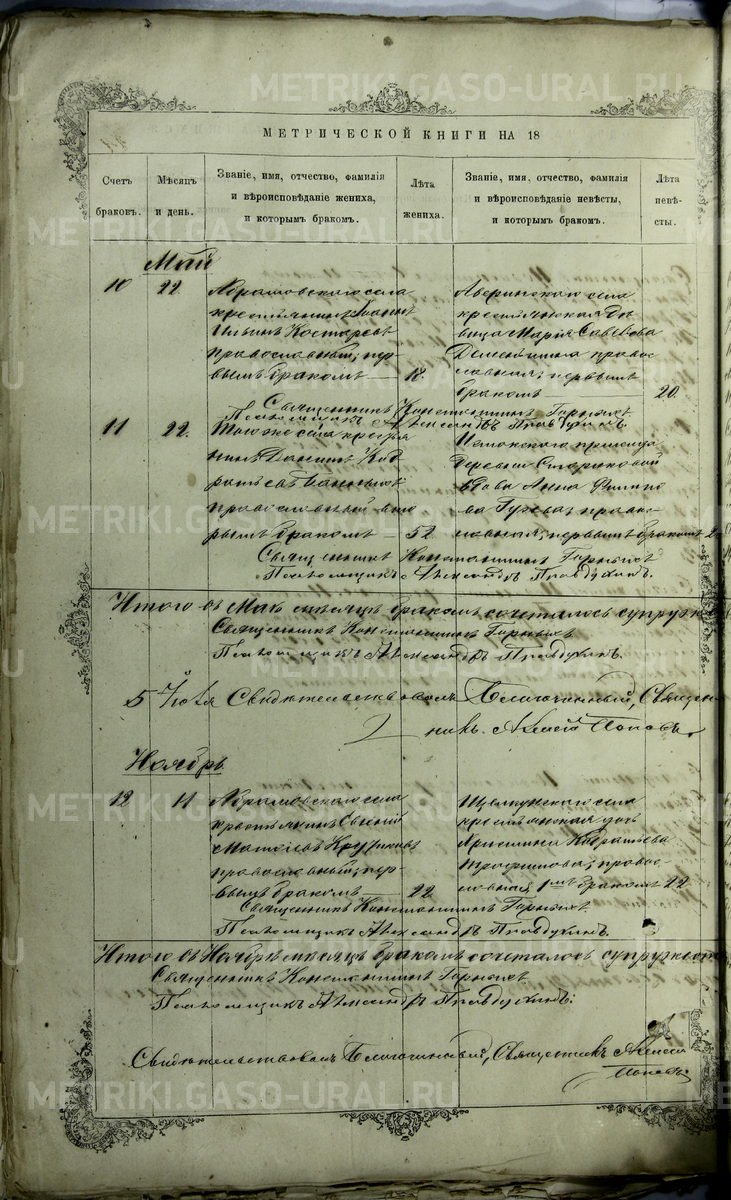 МЕТРИЧЕСКОЙ КНИГИ НА 18
Счетъ браковъ.
Мѣсяцъ и день.
Званіе, имя, отчество, фамилія
и вѣроисповѣданіе жениха,
и которымъ бракомъ.
Лѣта жениха.
Званіе, имя, отчество, фамилія
и вѣроисповѣданіе невѣсты,
и которымъ бракомъ.
Лѣта невѣ-
сты.
Май
10 22
Абрамовскаго села
крестьянинъ Іоаннъ
Ильинъ Костаревъ
православный; пер-
вымъ бракомъ — 18
Аверинскаго села
крестьянская дѣ
вица Марія Савѣева
православ
ная; первымъ
бракомъ 20.
Священникъ Константинъ Горныхъ
Псаломщикъ Александръ Правдухинъ.
11 22
Того же села крестья
нинъ
православный вто
рымъ бракомъ — 52
прихода
деревни Стариковой
вдова Анна Филипо
ва Гусева; право-
славная; первымъ бракомъ
Священникъ Константинъ Горныхъ
Псаломщикъ Александръ Правдухинъ.
Итого въ Маѣ мѣсяцѣ бракомъ сочеталось супружес
Священникъ Константинъ Горныхъ
Псаломщикъ Александръ Правдухинъ.
5 Іюля Свидѣтельствовалъ Благочинный, Священ-
никъ Алексѣй Поповъ.
Ноябрь
12 11
Абрамовскаго села
крестьянинъ
православный; пер-
вымъ бракомъ — 22
Щелкунскаго села
крестьянская дочь
Христина Кодратьева
Трофимова; право
славная, 1мъ бракомъ 22
Священникъ Константинъ Горныхъ
Псаломщикъ Александръ Правдухинъ.
Итого въ Ноябрѣ мѣсяцѣ бракомъ сочеталось супружеств
Священникъ Константинъ Горныхъ
Псаломщикъ Александръ Правдухинъ.
Свидѣтельствовалъ Благочинный, Священникъ Алексѣй
Поповъ
METRIKI.GASO-URAL.RU